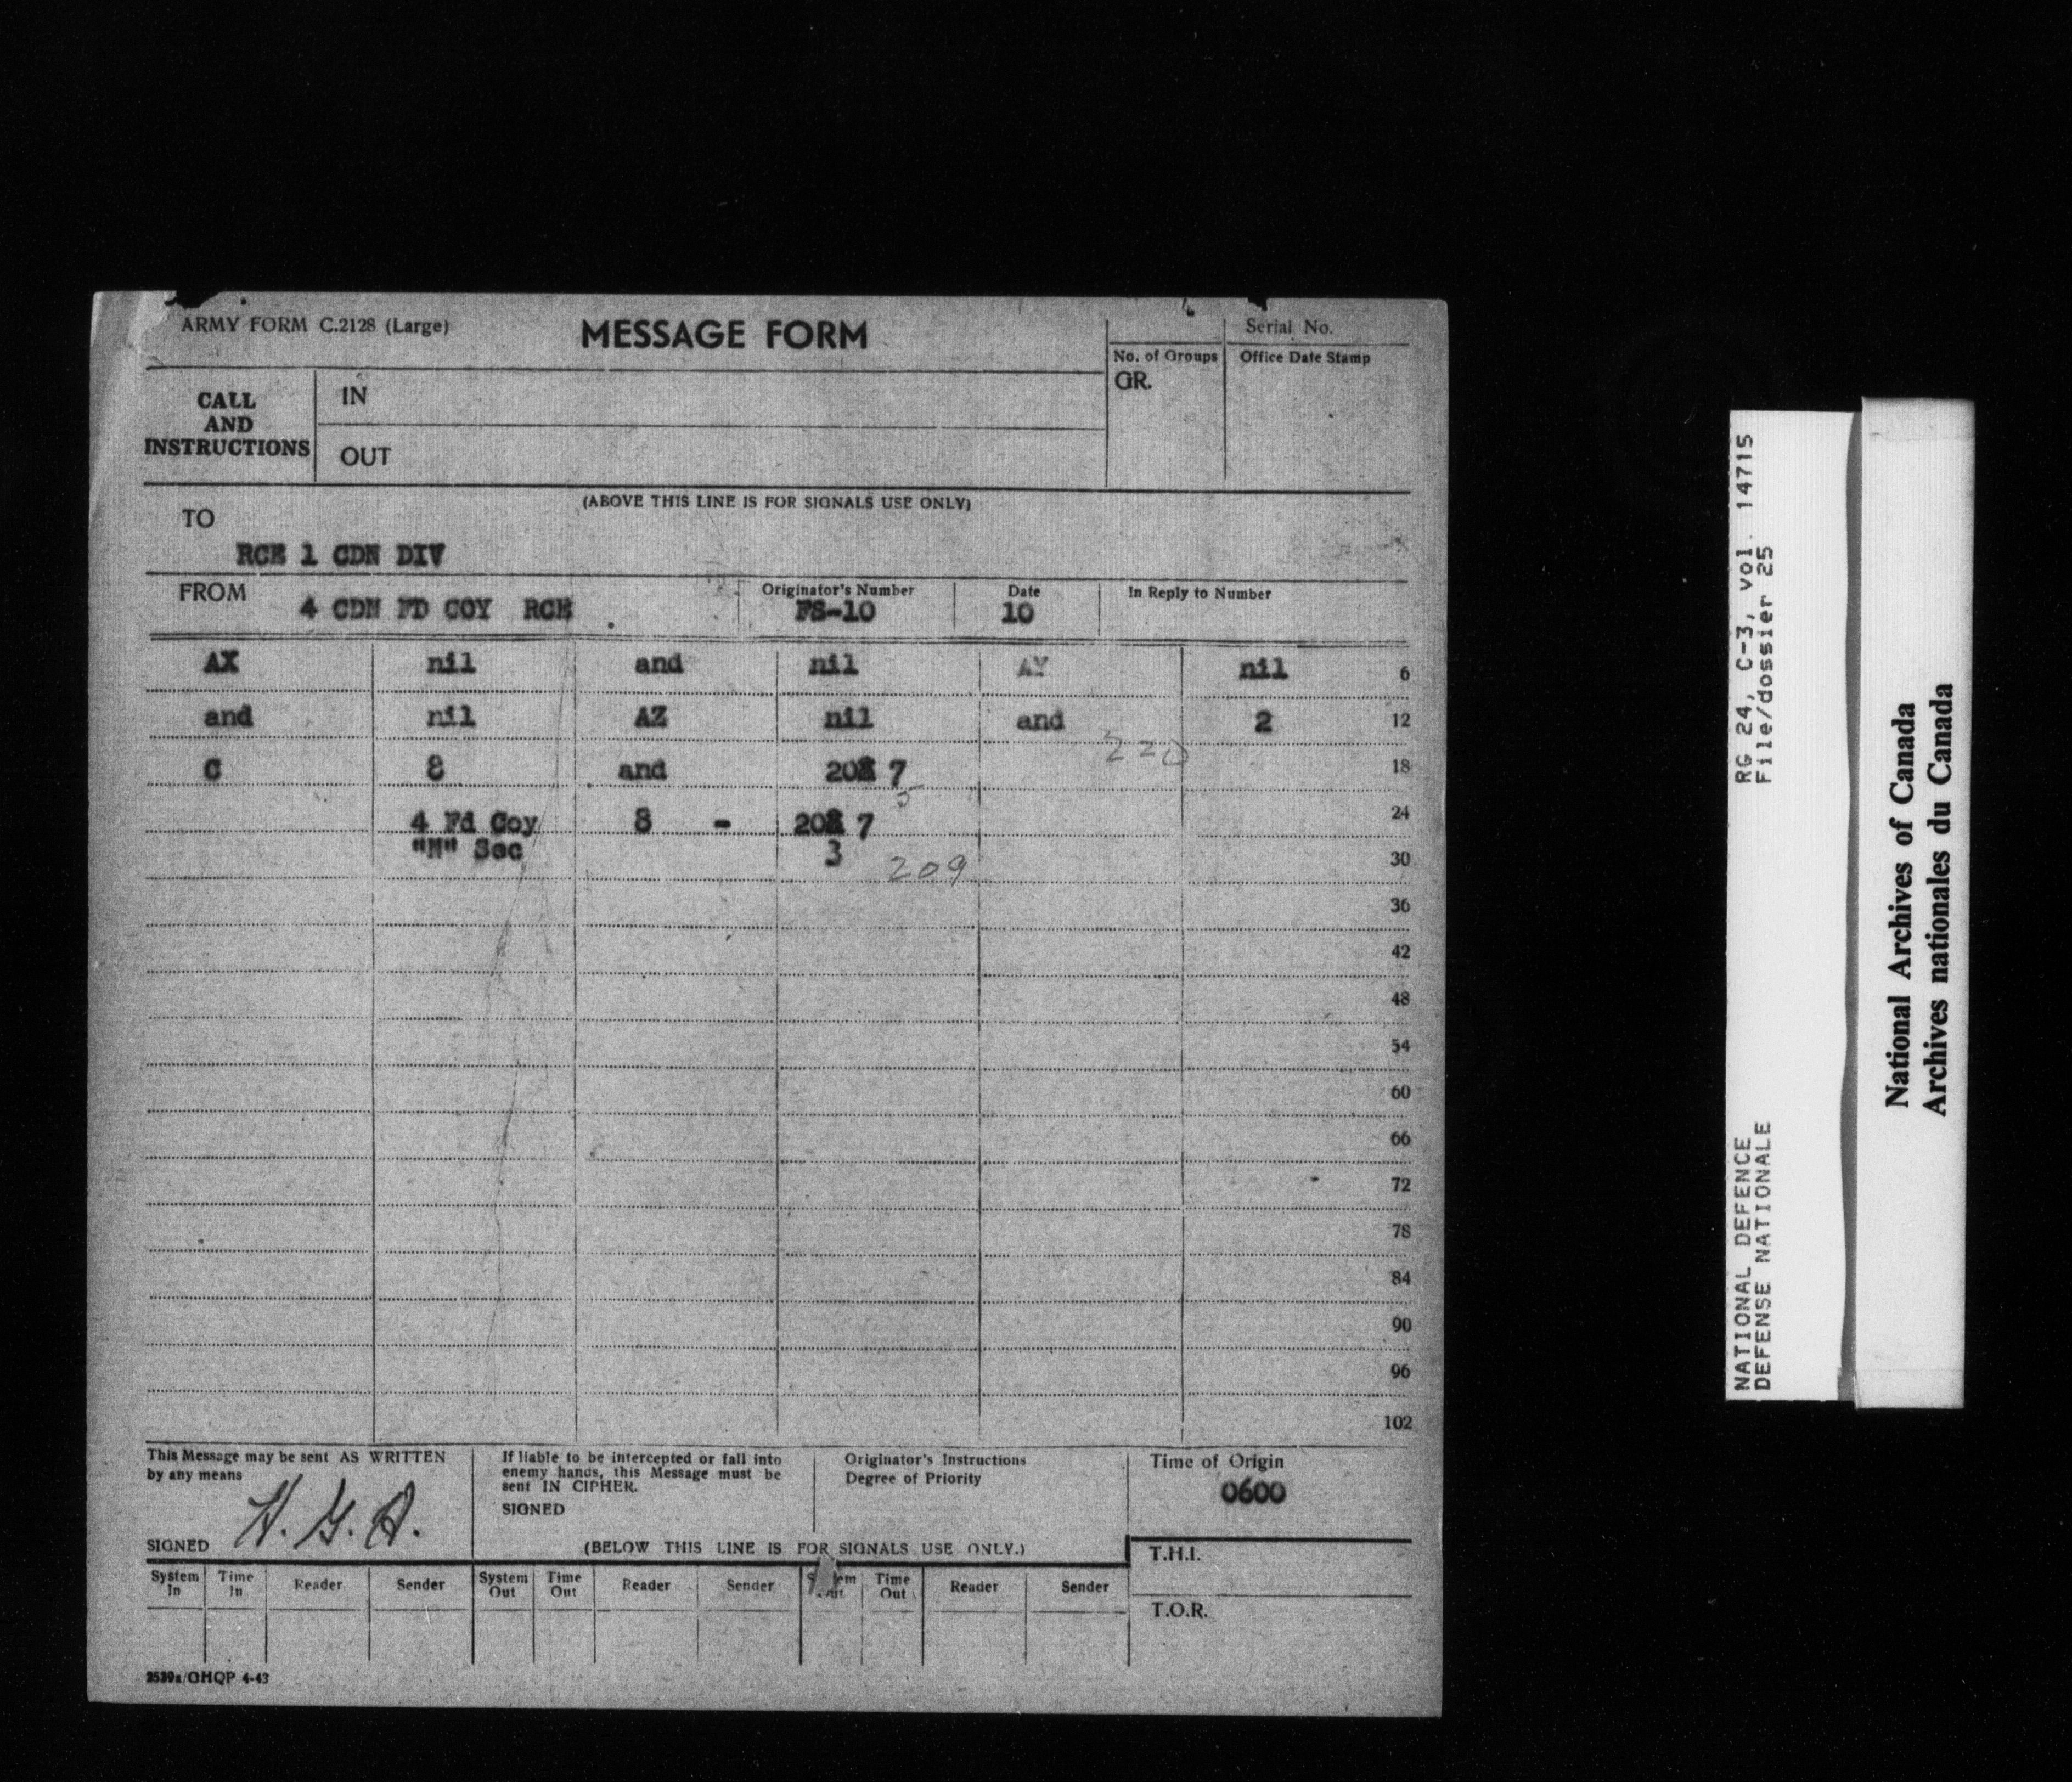 ARMY FORM C.2128 (Large)
MESSAGE FORM
Serial No.
No. of Groups
GR.
Office Date Stamp
CALL
AND
INSTRUCTIONS
IN
OUT
(ABOVE THIS LINE IS FOR SIGNALS USE ONLY)
TO
RCE 1 CDN DIV
FROM
4 CDN FD COY RCE
Originator's Number
FS-10
Date
10
In Reply to Number
AX nil and nil AY nil 6
and nil AZ nil and 2 12
220
C 8 and 20 7 18
5
4 Fd Coy 8 - 20 7 24
"N" Sec 3 30
209
36
42
48
54
60
66
72
78
84
90
96
102
This Message may be sent AS WRITTEN
by any means
SIGNED H. G. A.
If liable to be intercepted or fall into
enemy hands, this Message must be
sent IN CIPHER.
SIGNED
Originator's Instructions
Degree of Priority
Time of Origin
0600
(BELOW THIS LINE IS FOR SIGNALS USE ONLY.)
T.H.I.
T.O.R.
System In
Time In
Reader
Sender
System Out
Time Out
Reader
Sender
Time Out
Reader
Sender
2539a/GHQP 4-43
NATIONAL DEFENCE RG 24, C-3, vol. 14715
DEFENSE NATIONALE File/dossier 25
National Archives of Canada
Archives nationales du Canada